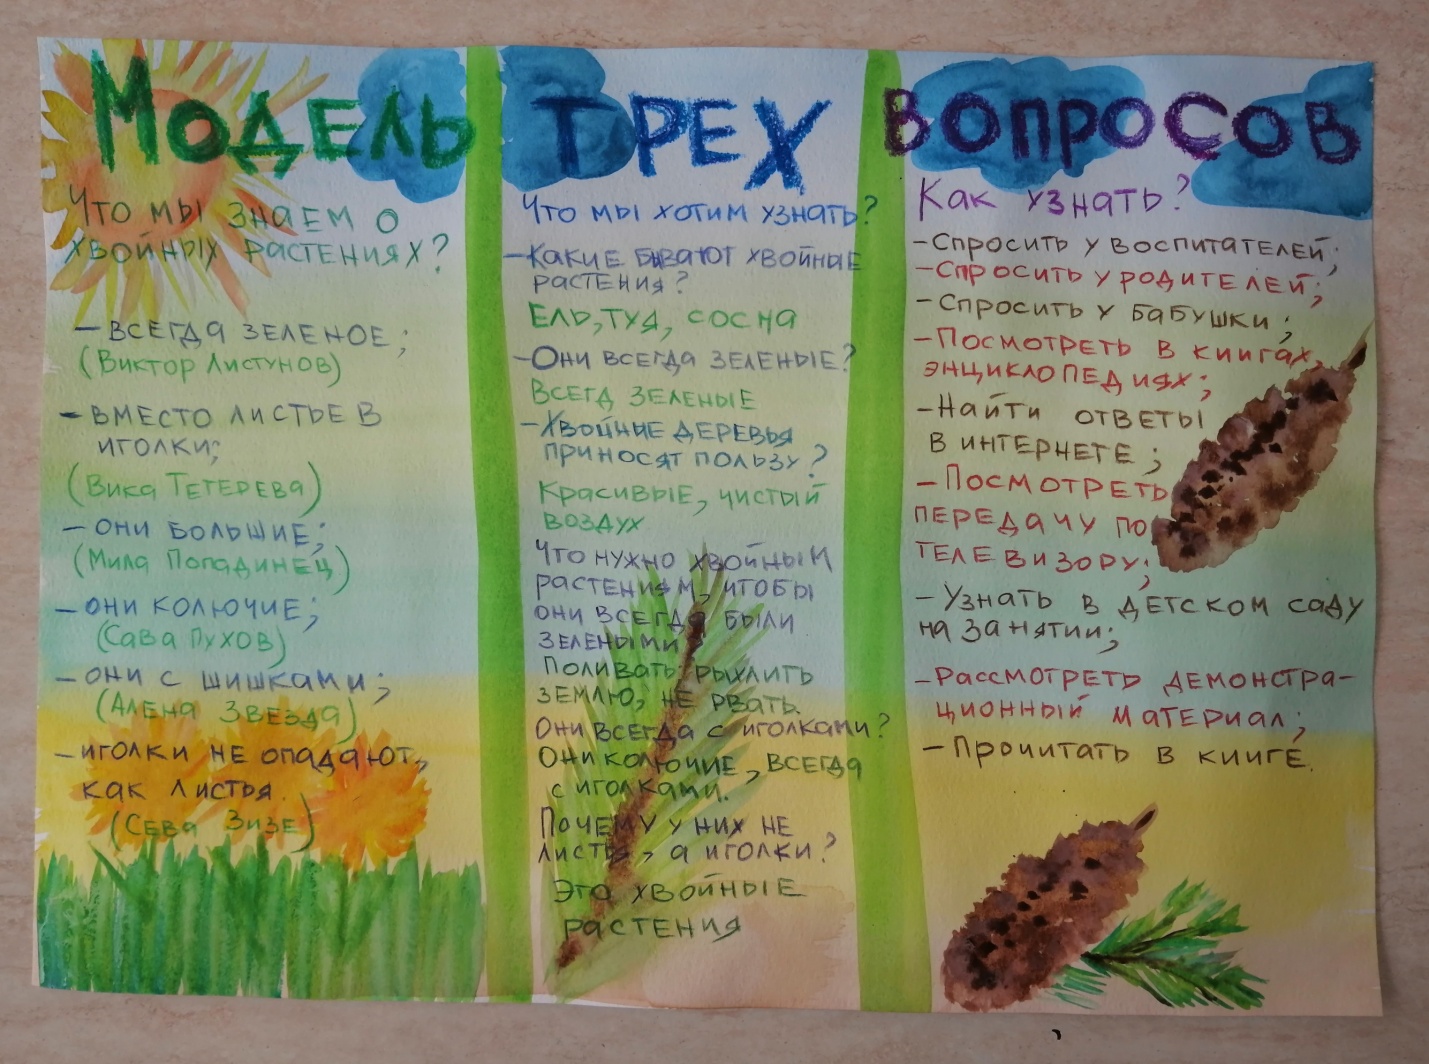 МОДЕЛЬ ТРЕХ ВОПРОСОВ
Что мы знаем о
хвойных растениях?
– всегда зеленое;
(Виктор Листунов)
– вместо листьев
иголки;
(Вика Тетерева)
– они большие;
(Мила Попадинец)
– они колючие;
(Сава Пухов)
– они с шишками;
(Алена Звезда)
– иголки не опадают,
как листья.
(Сева Зизе)
Что мы хотим узнать?
– Какие бывают хвойные
растения?
Ель, туя, сосна
– Они всегда зеленые?
Всегд зеленые
– Хвойные деревья
приносят пользу?
Красивые, чистый
воздух
Что нужно хвойным
растениям, чтобы
они всегда были
зелеными
Поливать, рыхлить
землю, не рвать.
Они всегда с иголками?
Они колючие, всегда
с иголками.
Почему у них не
листья, а иголки?
Это хвойные
растения
Как узнать?
– Спросить у воспитателей;
– Спросить у родителей;
– Спросить у бабушки;
– Посмотреть в книгах,
энциклопедиях;
– Найти ответы
в интернете;
– Посмотреть
передачу по
телевизору;
– Узнать в детском саду
на занятии;
– Рассмотреть демонстра-
ционный материал;
– Прочитать в книге.